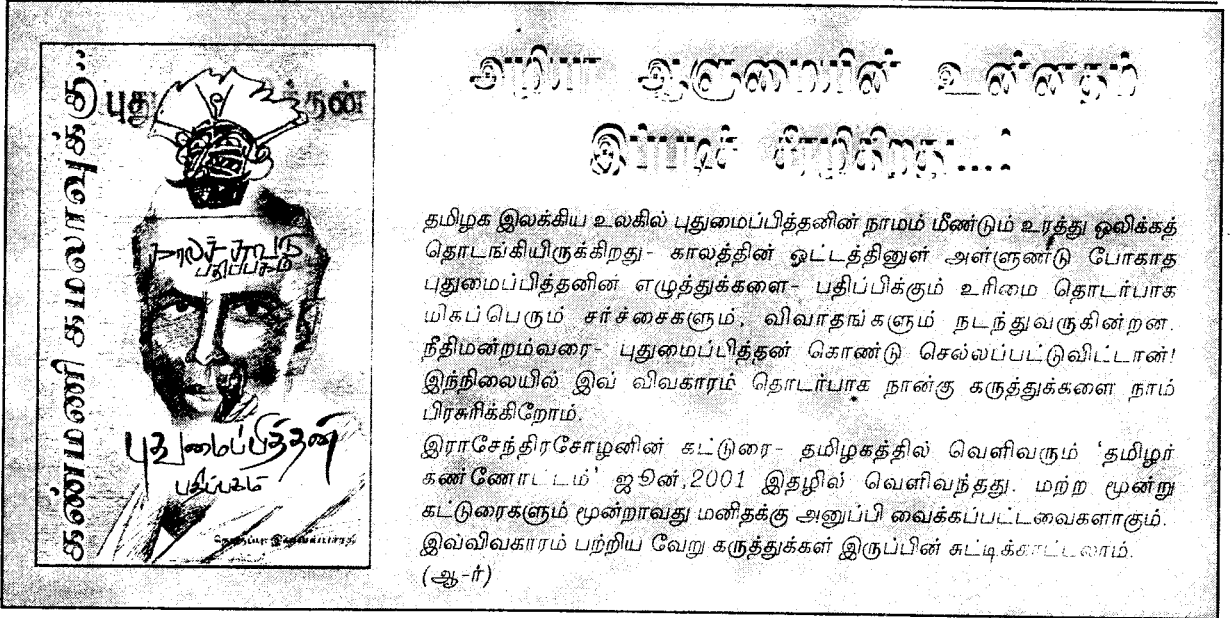 கண்மணி கமலாவுக்கு..
புது
த்தன்
காலச்சுவடு
பதிப்பகம்
புதுமைப்பித்தன்
பதிப்பகம்
அரிய ஆளுமையின் உன்னதம்
இப்படிச் சீரழிகிறது....!
தமிழக இலக்கிய உலகில் புதுமைப்பித்தனின் நாமம் மீண்டும் உரத்து ஒலிக்கத்
தொடங்கியிருக்கிறது- காலத்தின் ஓட்டத்தினுள் அள்ளுண்டு போகாத
புதுமைப்பித்தனின் எழுத்துக்களை- பதிப்பிக்கும் உரிமை தொடர்பாக
மிகப்பெரும் சர்ச்சைகளும், விவாதங்களும் நடந்துவருகின்றன.
நீதிமன்றம்வரை- புதுமைப்பித்தன் கொண்டு செல்லப்பட்டுவிட்டான்!
இந்நிலையில் இவ் விவகாரம் தொடர்பாக நான்கு கருத்துக்களை நாம்
பிரசுரிக்கிறோம்.
இராசேந்திரசோழனின் கட்டுரை- தமிழகத்தில் வெளிவரும் 'தமிழர்
கண்ணோட்டம்' ஜூன்,2001 இதழில் வெளிவந்தது. மற்ற மூன்று
கட்டுரைகளும் மூன்றாவது மனிதக்கு அனுப்பி வைக்கப்பட்டவைகளாகும்.
இவ்விவகாரம் பற்றிய வேறு கருத்துக்கள் இருப்பின் சுட்டிக்காட்டலாம்.
(ஆ-ர்)